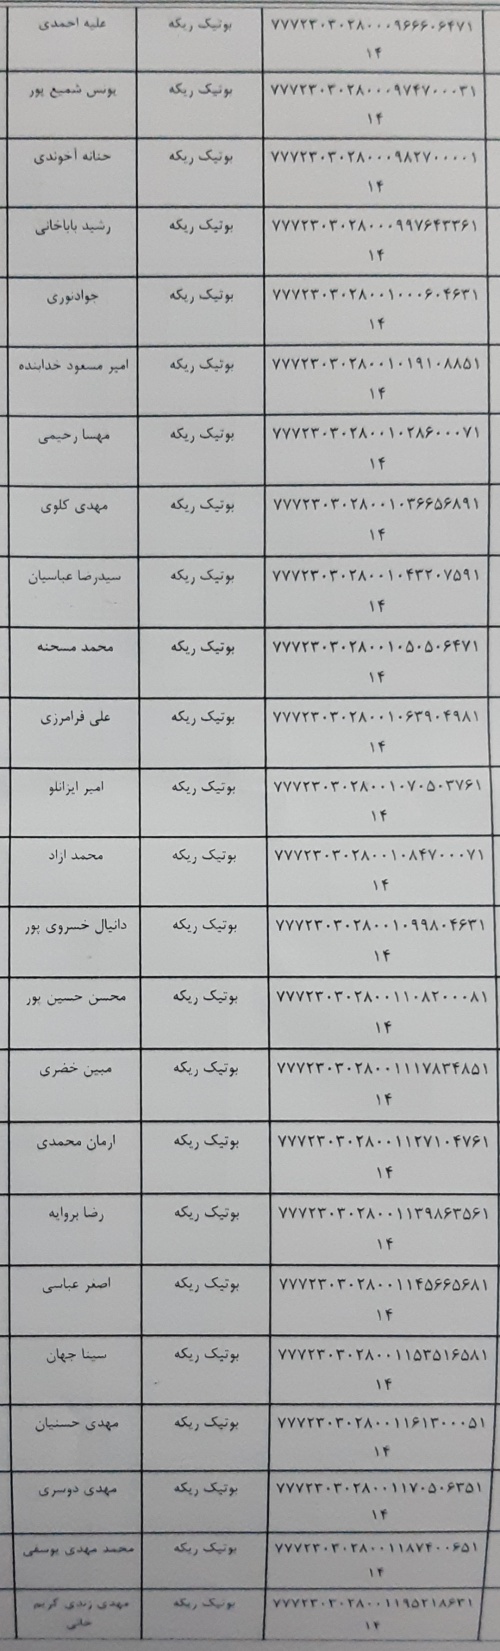 علیه احمدی بوتیک ریکه ۷۷۷۲۳۰۳۰۲۸۰۰۰۹۶۶۶۰۶۴۷۱
۱۴
یونس شمیع پور بوتیک ریکه ۷۷۷۲۳۰۳۰۲۸۰۰۰۹۷۴۷۰۰۰۳۱
۱۴
حنانه آخوندی بوتیک ریکه ۷۷۷۲۳۰۳۰۲۸۰۰۰۹۸۲۷۰۰۰۰۱
۱۴
رشید باباخانی بوتیک ریکه ۷۷۷۲۳۰۳۰۲۸۰۰۰۹۹۷۶۴۳۳۶۱
۱۴
جوادنوری بوتیک ریکه ۷۷۷۲۳۰۳۰۲۸۰۰۱۰۰۰۶۰۴۶۳۱
۱۴
امیر مسعود خدابنده بوتیک ریکه ۷۷۷۲۳۰۳۰۲۸۰۰۱۰۱۹۱۰۸۸۵۱
۱۴
مهسا رحیمی بوتیک ریکه ۷۷۷۲۳۰۳۰۲۸۰۰۱۰۲۸۶۰۰۰۷۱
۱۴
مهدی کلوی بوتیک ریکه ۷۷۷۲۳۰۳۰۲۸۰۰۱۰۳۶۶۵۶۸۹۱
۱۴
سیدرضا عباسیان بوتیک ریکه ۷۷۷۲۳۰۳۰۲۸۰۰۱۰۴۳۲۰۷۵۹۱
۱۴
محمد مسحنه بوتیک ریکه ۷۷۷۲۳۰۳۰۲۸۰۰۱۰۵۰۵۰۶۴۷۱
۱۴
علی فرامرزی بوتیک ریکه ۷۷۷۲۳۰۳۰۲۸۰۰۱۰۶۳۹۰۴۹۸۱
۱۴
امیر ایزانلو بوتیک ریکه ۷۷۷۲۳۰۳۰۲۸۰۰۱۰۷۰۵۰۳۷۶۱
۱۴
محمد ازاد بوتیک ریکه ۷۷۷۲۳۰۳۰۲۸۰۰۱۰۸۴۷۰۰۰۷۱
۱۴
دانیال خسروی پور بوتیک ریکه ۷۷۷۲۳۰۳۰۲۸۰۰۱۰۹۹۸۰۴۶۳۱
۱۴
محسن حسین پور بوتیک ریکه ۷۷۷۲۳۰۳۰۲۸۰۰۱۱۰۸۲۰۰۰۸۱
۱۴
مبین خضری بوتیک ریکه ۷۷۷۲۳۰۳۰۲۸۰۰۱۱۱۷۸۳۴۸۵۱
۱۴
ارمان محمدی بوتیک ریکه ۷۷۷۲۳۰۳۰۲۸۰۰۱۱۲۷۱۰۴۷۶۱
۱۴
رضا بروایه بوتیک ریکه ۷۷۷۲۳۰۳۰۲۸۰۰۱۱۳۹۸۶۳۵۶۱
۱۴
اصغر عباسی بوتیک ریکه ۷۷۷۲۳۰۳۰۲۸۰۰۱۱۴۵۶۶۵۶۸۱
۱۴
سینا جهان بوتیک ریکه ۷۷۷۲۳۰۳۰۲۸۰۰۱۱۵۳۵۱۶۵۸۱
۱۴
مهدی حسنیان بوتیک ریکه ۷۷۷۲۳۰۳۰۲۸۰۰۱۱۶۱۳۰۰۰۵۱
۱۴
مهدی دوسری بوتیک ریکه ۷۷۷۲۳۰۳۰۲۸۰۰۱۱۷۰۵۰۶۳۵۱
۱۴
محمد مهدی یوسفی بوتیک ریکه ۷۷۷۲۳۰۳۰۲۸۰۰۱۱۸۷۴۰۰۶۵۱
۱۴
مهدی زندی کریم بوتیک ریکه ۷۷۷۲۳۰۳۰۲۸۰۰۱۱۹۵۲۱۸۶۳۱
خانی ۱۴